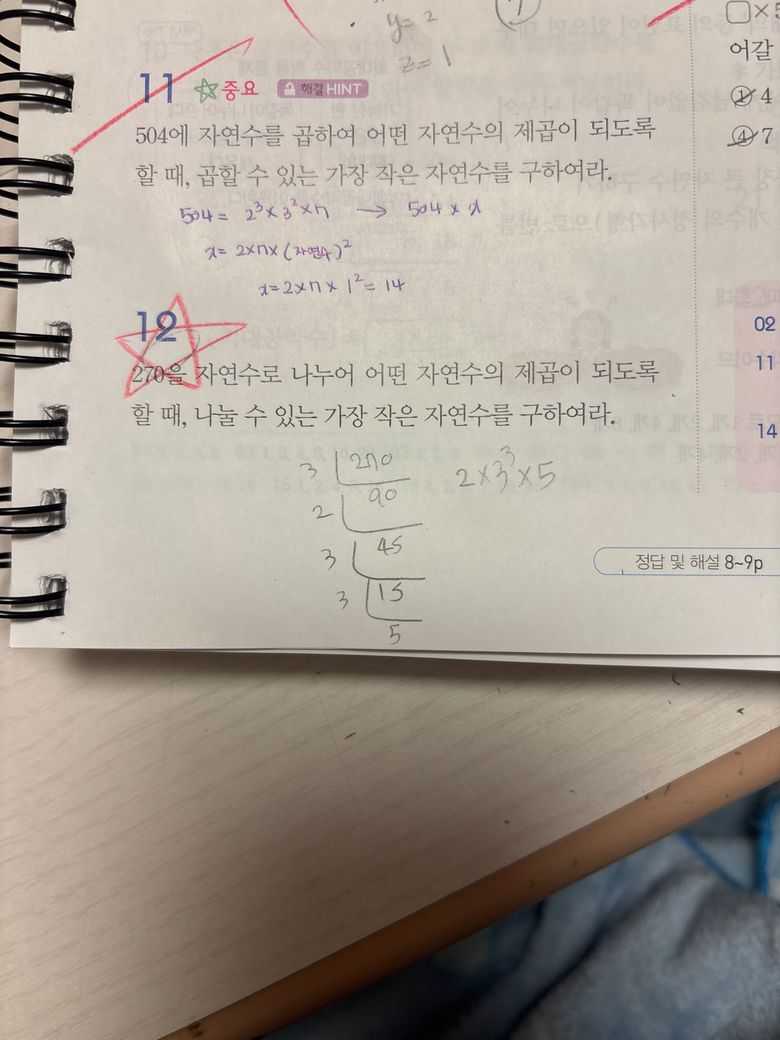 y=2
z=1
11 중요 해결 HINT
504에 자연수를 곱하여 어떤 자연수의 제곱이 되도록
할 때, 곱할 수 있는 가장 작은 자연수를 구하여라.
504 = 2³×3²×7 → 504×x
x=2×7×(자연수)²
x=2×7×1²=14
12
270을 자연수로 나누어 어떤 자연수의 제곱이 되도록
할 때, 나눌 수 있는 가장 작은 자연수를 구하여라.
3 270
2 90
3 45
3 15
5
2×3³×5
정답 및 해설 8~9p
□×5
어갈
① 4
④ 7
02
11
14